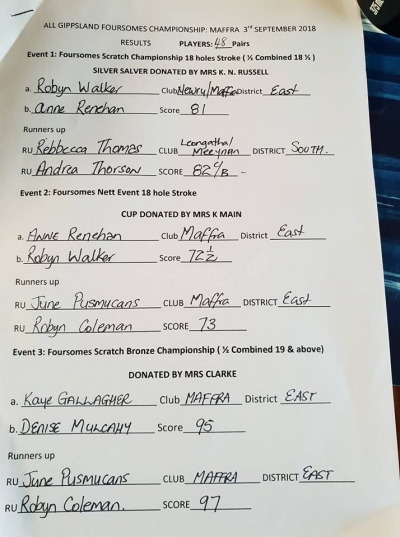 ALL GIPPSLAND FOURSOMES CHAMPIONSHIP: MAFFRA 3rd SEPTEMBER 2018
RESULTS PLAYERS: 48 Pairs
Event 1: Foursomes Scratch Championship 18 holes Stroke ( ½ Combined 18 ½ )
SILVER SALVER DONATED BY MRS K. N. RUSSELL
a. Robyn Walker Club Newry/Maffra District East
b. Anne Renehan Score 81
Runners up
RU Rebbecca Thomas CLUB Leongatha/Meeynan DISTRICT SOUTH.
RU Andrea Thorson SCORE 82 c/B -
Event 2: Foursomes Nett Event 18 hole Stroke
CUP DONATED BY MRS K MAIN
a. ANNE Renehan Club Maffra District East
b. Robyn Walker Score 72 ½
Runners up
RU June Pusmucans CLUB Maffra DISTRICT East
RU Robyn Coleman SCORE 73
Event 3: Foursomes Scratch Bronze Championship ( ½ Combined 19 & above)
DONATED BY MRS CLARKE
a. Kaye GALLAGHER Club MAFFRA District EAST
b. DENISE MULCAHY Score 95
Runners up
RU June Pusmucans CLUB MAFFRA DISTRICT EAST
RU Robyn Coleman. SCORE 97